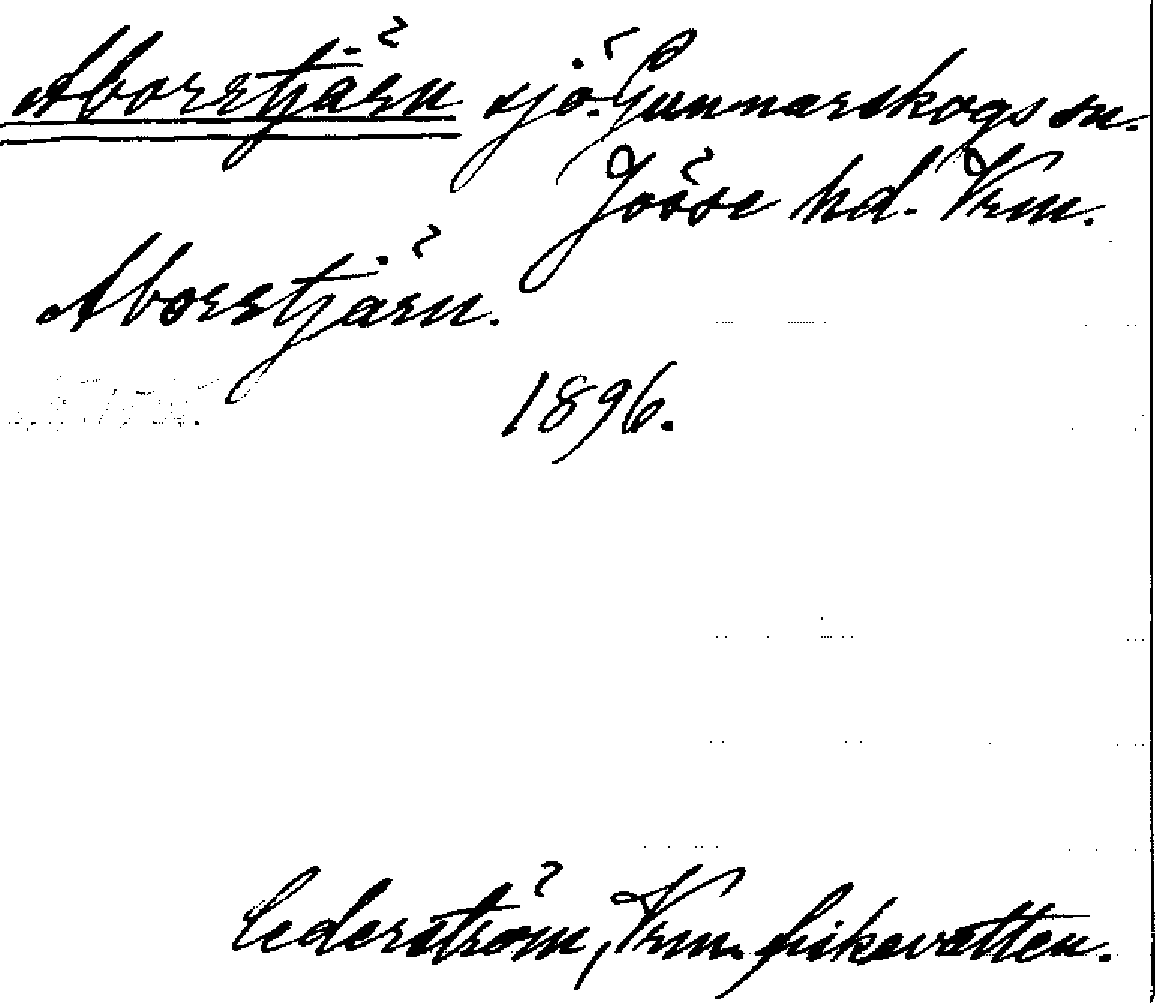 Aborrtjärn sjö. Gunnarskogs sn.
Jösse hd. Vrm.
Aborrtjärn.
1896.
Cederström, Vrm. fiskevatten.